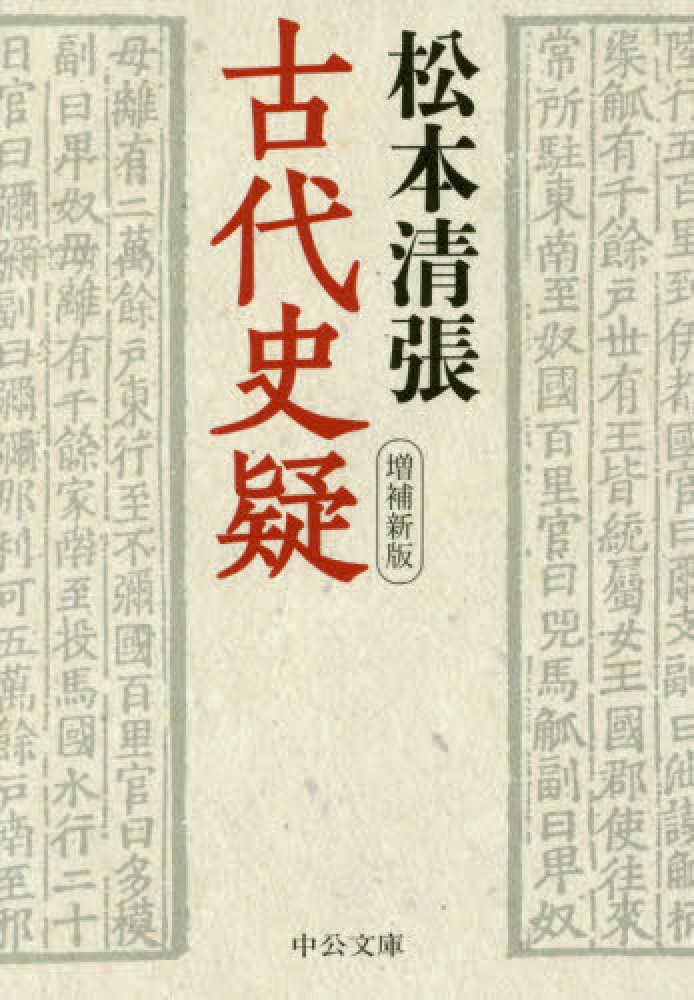 松本清張
古代史疑
増補新版
中公文庫
陸行五百里到伊都國官曰爾支副曰泄謨觚柄
渠觚有千餘戶丗有王皆統屬女王國郡使往來
常所駐東南至奴國百里官曰兕馬觚副曰卑奴
毋離有二萬餘戶東行至不彌國百里官曰多模
副曰卑奴毋離有千餘家南至投馬國水行二十
日官曰彌彌副曰彌彌那利可五萬餘戶南至邪